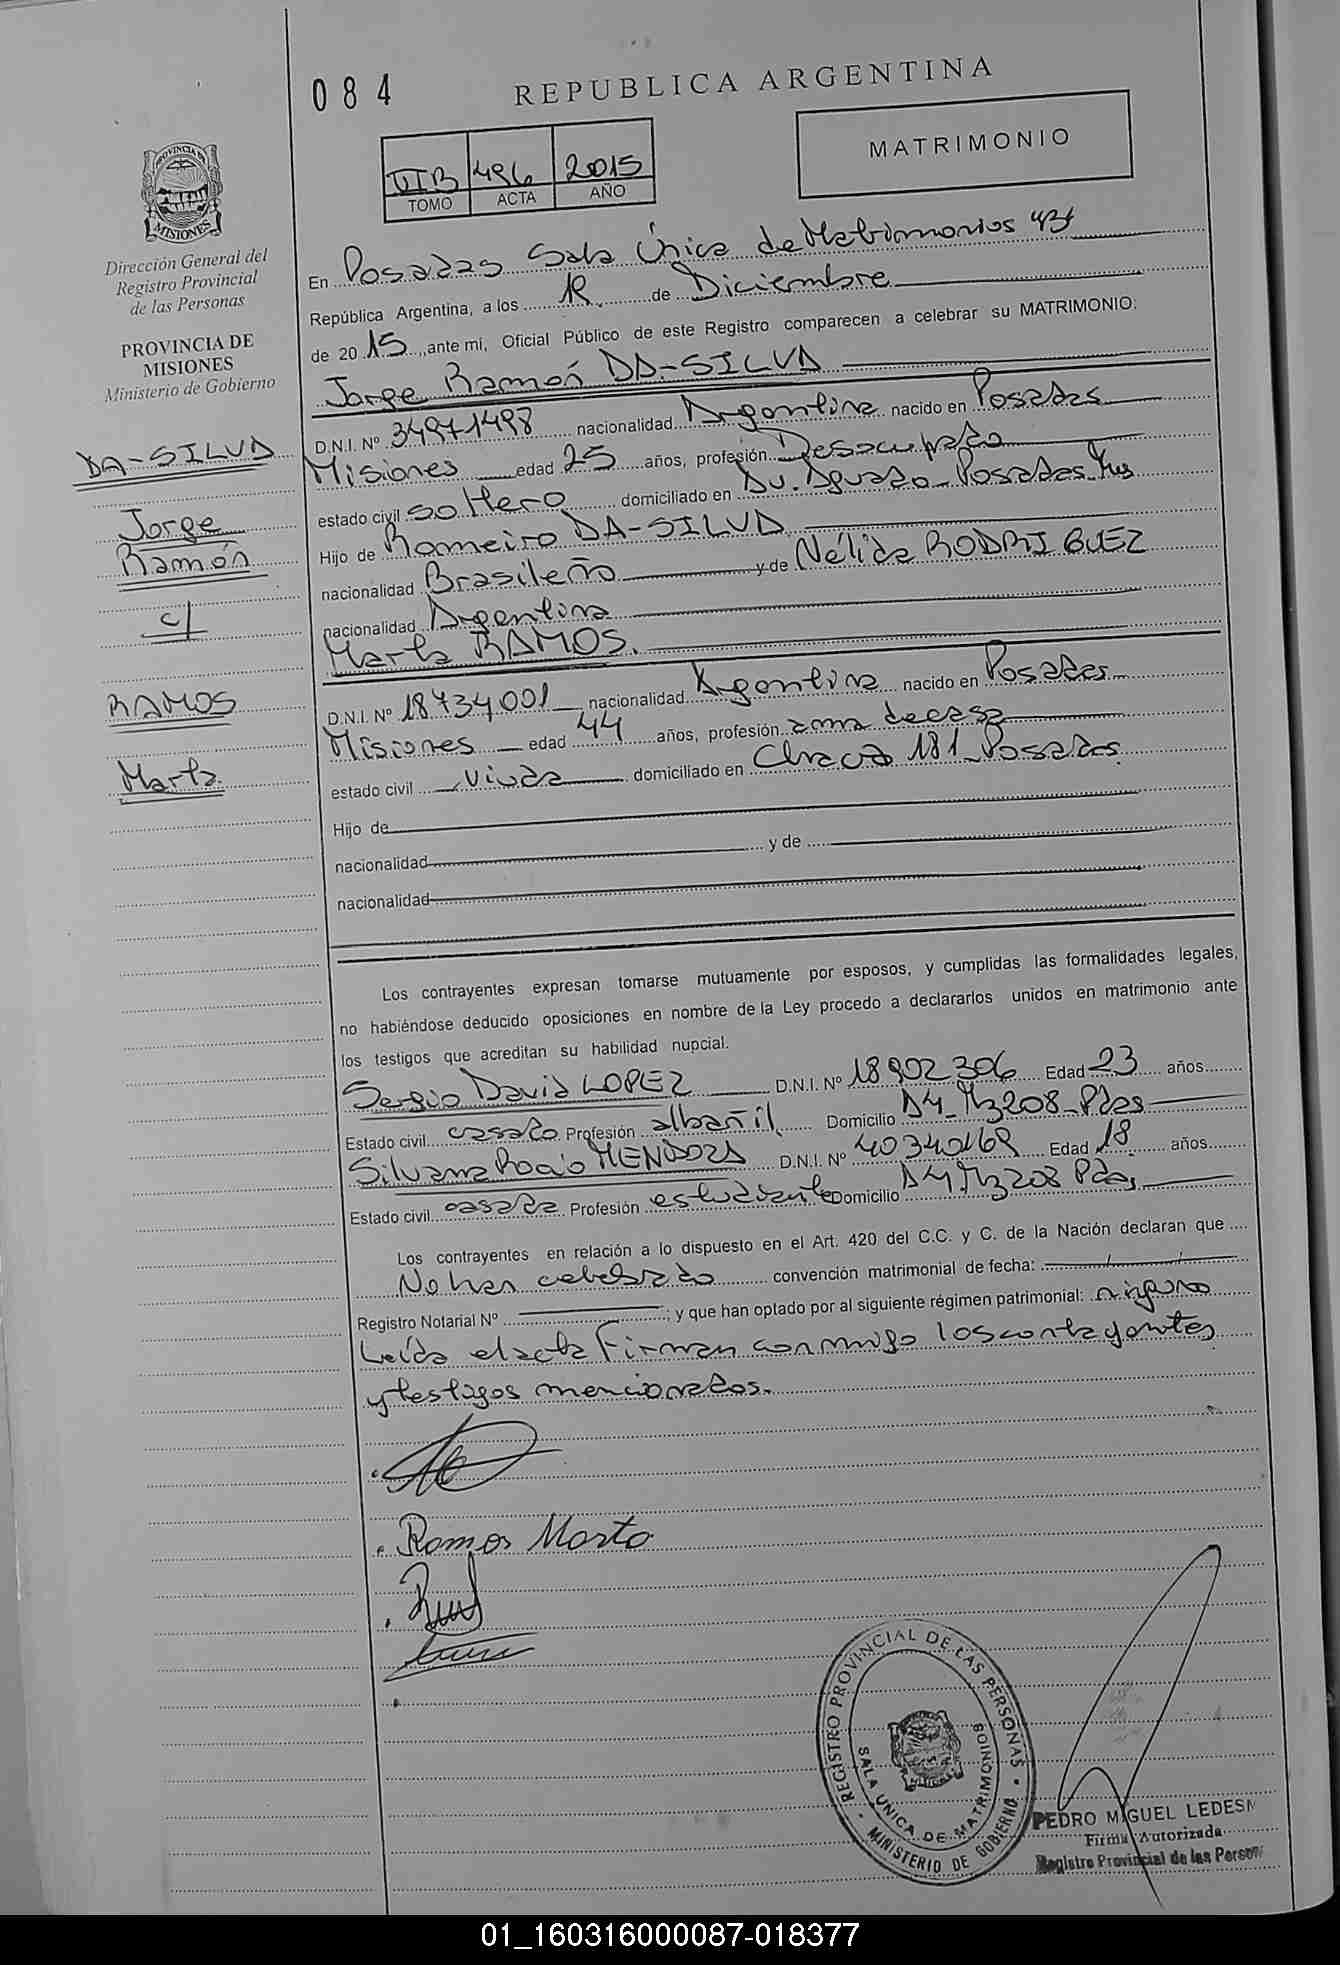 084
REPUBLICA ARGENTINA
MATRIMONIO
IIB 496 2015
TOMO ACTA AÑO
PROVINCIA DE
MISIONES
Dirección General del
Registro Provincial
de las Personas
PROVINCIA DE
MISIONES
Ministerio de Gobierno
En Posadas Sala Única de Matrimonios
República Argentina, a los de Diciembre
de 2015, ante mi, Oficial Público de este Registro comparecen a celebrar su MATRIMONIO:
Jorge Ramón DA-SILVA
D.N.I. Nº 34971498 nacionalidad Argentina nacido en Posadas
Misiones edad 25 años, profesión Desocupado
estado civil soltero domiciliado en Av. Aguado Posadas Mnes
Hijo de Romeiro DA-SILVA
nacionalidad Brasileño y de Nélida RODRIGUEZ
nacionalidad Argentina
Marta RAMOS.
D.N.I. Nº 18734001 nacionalidad Argentina nacido en Posadas
Misiones edad 44 años, profesión ama de casa
estado civil viuda domiciliado en Chacra 181 Posadas
Hijo de
nacionalidad y de
nacionalidad
DA-SILVA
Jorge
Ramón
c/
RAMOS
Marta
Los contrayentes expresan tomarse mutuamente por esposos, y cumplidas las formalidades legales,
no habiéndose deducido oposiciones en nombre de la Ley procedo a declararlos unidos en matrimonio ante
los testigos que acreditan su habilidad nupcial.
Sergio David LOPEZ D.N.I. Nº 18902306 Edad 23 años
Estado civil casado Profesión albañil Domicilio A4 Mz 208 Pdas
Silvana Rocío MENDOZA D.N.I. Nº 40340169 Edad 18 años
Estado civil casada Profesión estudiante Domicilio A4 Mz 208 Pdas
Los contrayentes en relación a lo dispuesto en el Art. 420 del C.C. y C. de la Nación declaran que
No han celebrado convención matrimonial de fecha: / /
Registro Notarial Nº ; y que han optado por al siguiente régimen patrimonial: ninguno
Leída el acta Firman conmigo los contrayentes
y testigos mencionados.
Ramos Marta
REGISTRO PROVINCIAL DE LAS PERSONAS
SALA UNICA DE MATRIMONIOS
MINISTERIO DE GOBIERNO
PEDRO MIGUEL LEDESM
Firma Autorizada
Registro Provincial de las Person
01_160316000087-018377